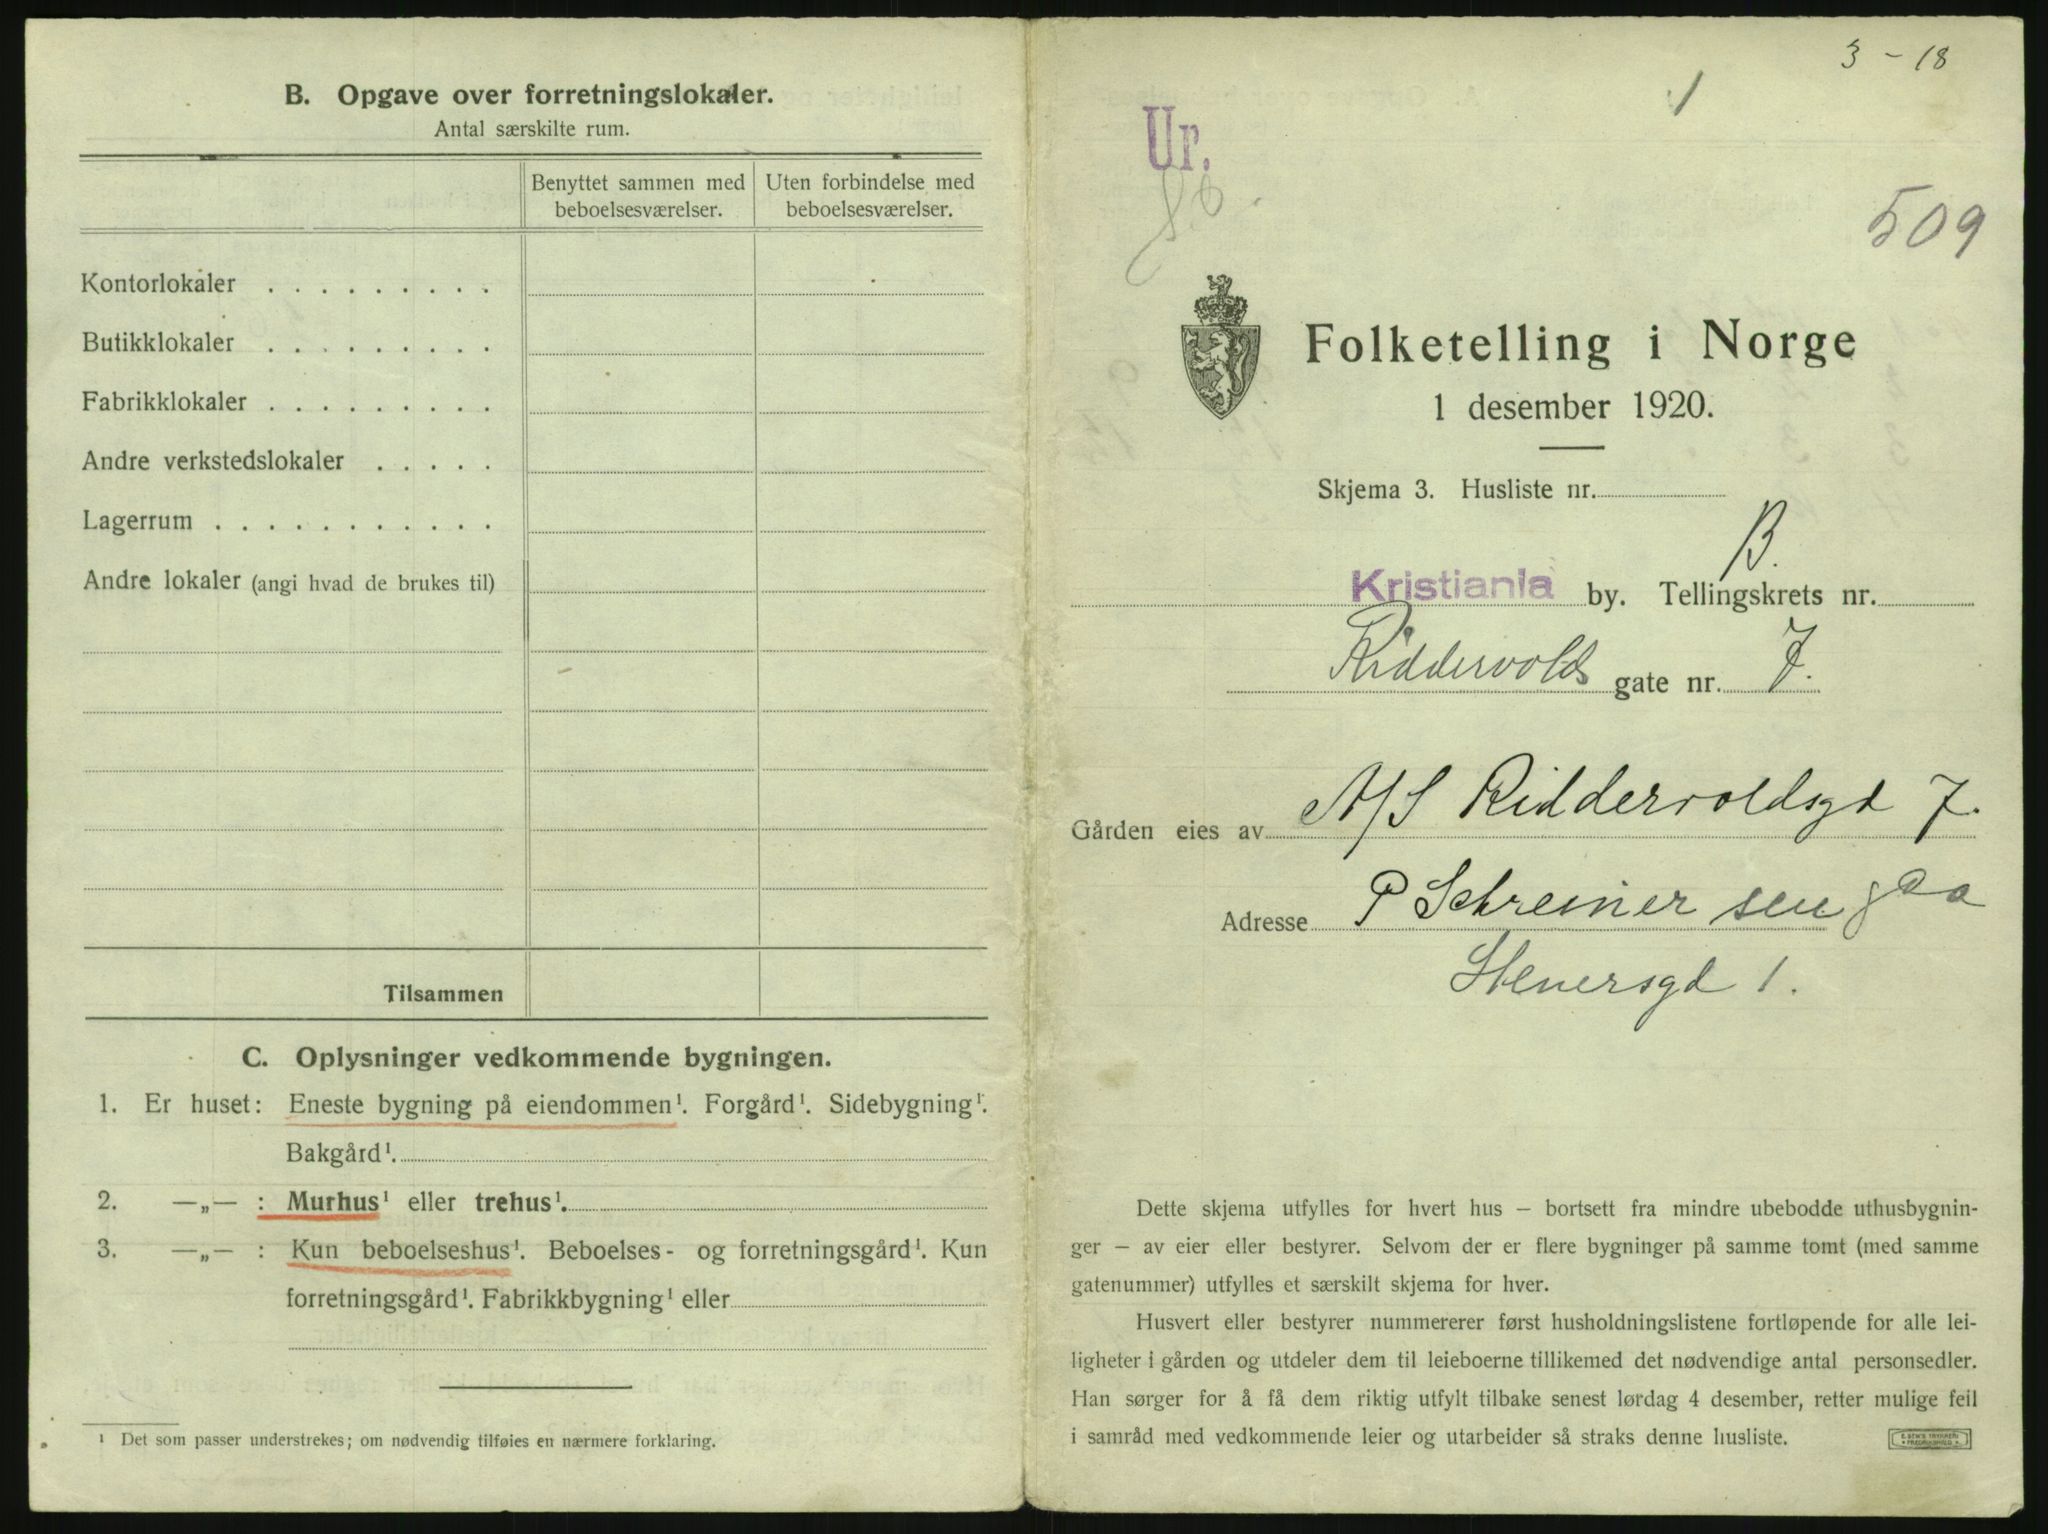 B. Opgave over forretningslokaler.
Antal særskilte rum.
Benyttet sammen med beboelsesværelser.
Uten forbindelse med beboelsesværelser.
Kontorlokaler . . . . . . . . .
Butikklokaler . . . . . . . . .
Fabrikklokaler . . . . . . . . .
Andre verkstedslokaler . . . . .
Lagerrum . . . . . . . . . . .
Andre lokaler (angi hvad de brukes til)
Tilsammen
C. Oplysninger vedkommende bygningen.
1. Er huset: Eneste bygning på eiendommen¹. Forgård¹. Sidebygning¹.
Bakgård¹.
2. —„— : Murhus¹ eller trehus¹.
3. —„— : Kun beboelseshus¹. Beboelses- og forretningsgård¹. Kun
forretningsgård¹. Fabrikkbygning¹ eller
¹ Det som passer understrekes; om nødvendig tilføies en nærmere forklaring.
3 - 18
1
Ur.
509
Folketelling i Norge
1 desember 1920.
Skjema 3. Husliste nr.
B.
Kristiania by. Tellingskrets nr.
Riddervolds gate nr. 7.
Gården eies av A/S Riddervoldsgd 7.
Adresse P Schreiner sen
Stenersgd 1.
Dette skjema utfylles for hvert hus – bortsett fra mindre ubebodde uthusbygnin-
ger – av eier eller bestyrer. Selvom der er flere bygninger på samme tomt (med samme
gatenummer) utfylles et særskilt skjema for hver.
Husvert eller bestyrer nummererer først husholdningslistene fortløpende for alle lei-
ligheter i gården og utdeler dem til leieboerne tillikemed det nødvendige antal personsedler.
Han sørger for å få dem riktig utfylt tilbake senest lørdag 4 desember, retter mulige feil
i samråd med vedkommende leier og utarbeider så straks denne husliste.